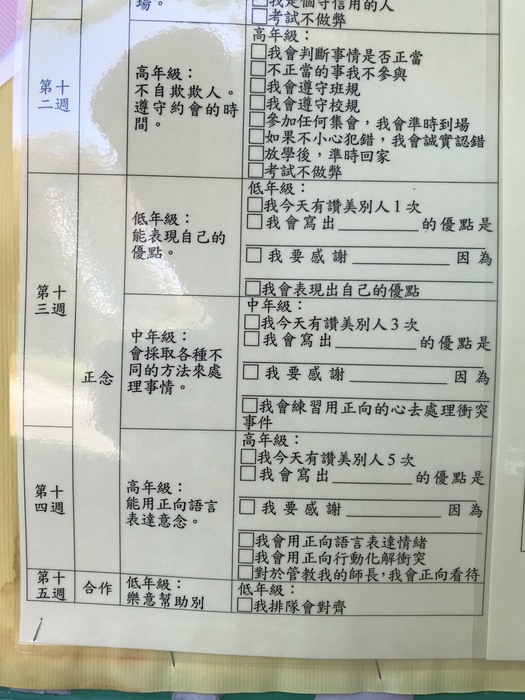 場。
我是個守信用的人
□考試不做弊
第十二週
高年級：
不自欺欺人。
遵守約會的時
間。
高年級：
□我會判斷事情是否正當
□不正當的事我不參與
□我會遵守班規
□我會遵守校規
□參加任何集會，我會準時到場
□如果不小心犯錯，我會誠實認錯
□放學後，準時回家
□考試不做弊
第十三週
正念
低年級：
能表現自己的
優點。
低年級：
□我今天有讚美別人1次
□我會寫出________的優點是
________
□我要感謝________因為
________
□我會表現出自己的優點
中年級：
會採取各種不
同的方法來處
理事情。
中年級：
□我今天有讚美別人3次
□我會寫出________的優點是
________
□我要感謝________因為
________
□我會練習用正向的心去處理衝突
事件
第十四週
高年級：
能用正向語言
表達意念。
高年級：
□我今天有讚美別人5次
□我會寫出________的優點是
________
□我要感謝________因為
________
□我會用正向語言表達情緒
□我會用正向行動化解衝突
□對於管教我的師長，我會正向看待
第十五週
合作
低年級：
樂意幫助別
低年級：
□我排隊會對齊